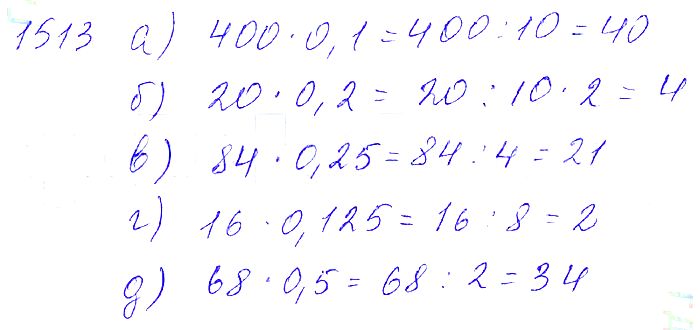 1513 а) 400 · 0,1 = 400 : 10 = 40
б) 20 · 0,2 = 20 : 10 · 2 = 4
в) 84 · 0,25 = 84 : 4 = 21
г) 16 · 0,125 = 16 : 8 = 2
д) 68 · 0,5 = 68 : 2 = 34